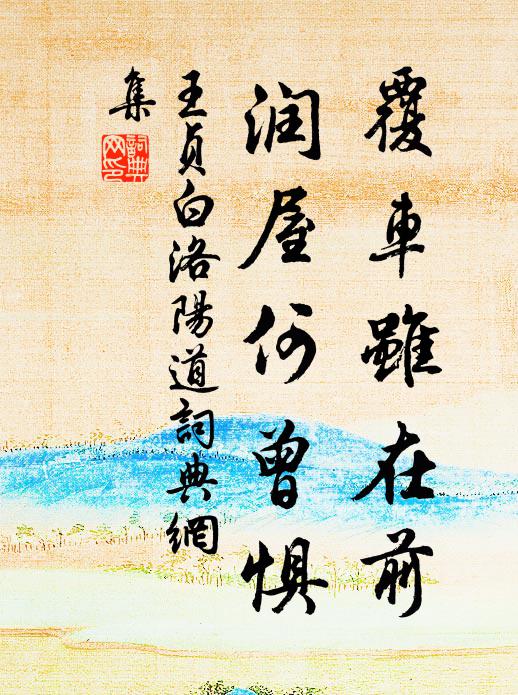 覆車雖在前
润屋何曾惧
王貞白洛陽道詞典網
集
詞典网印